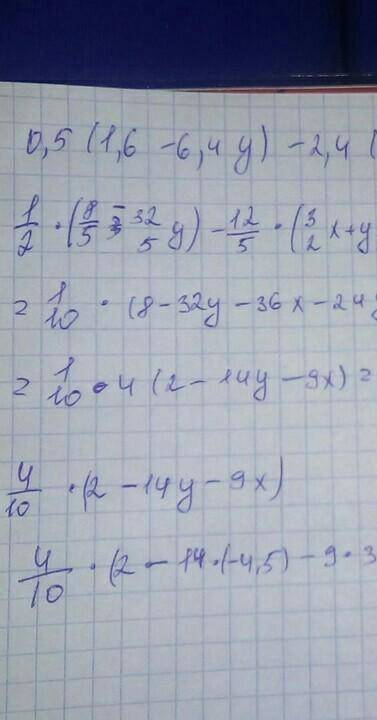 0,5 (1,6 - 6,4 y) - 2,4 (
1/2 · (8/5 - 32/5 y) - 12/5 · (3/2 x + y
= 1/10 · (8 - 32y - 36x - 24y
= 1/10 · 4 (2 - 14y - 9x) =
4/10 · (2 - 14y - 9x)
4/10 · (2 - 14 · (-4,5) - 9 · 3